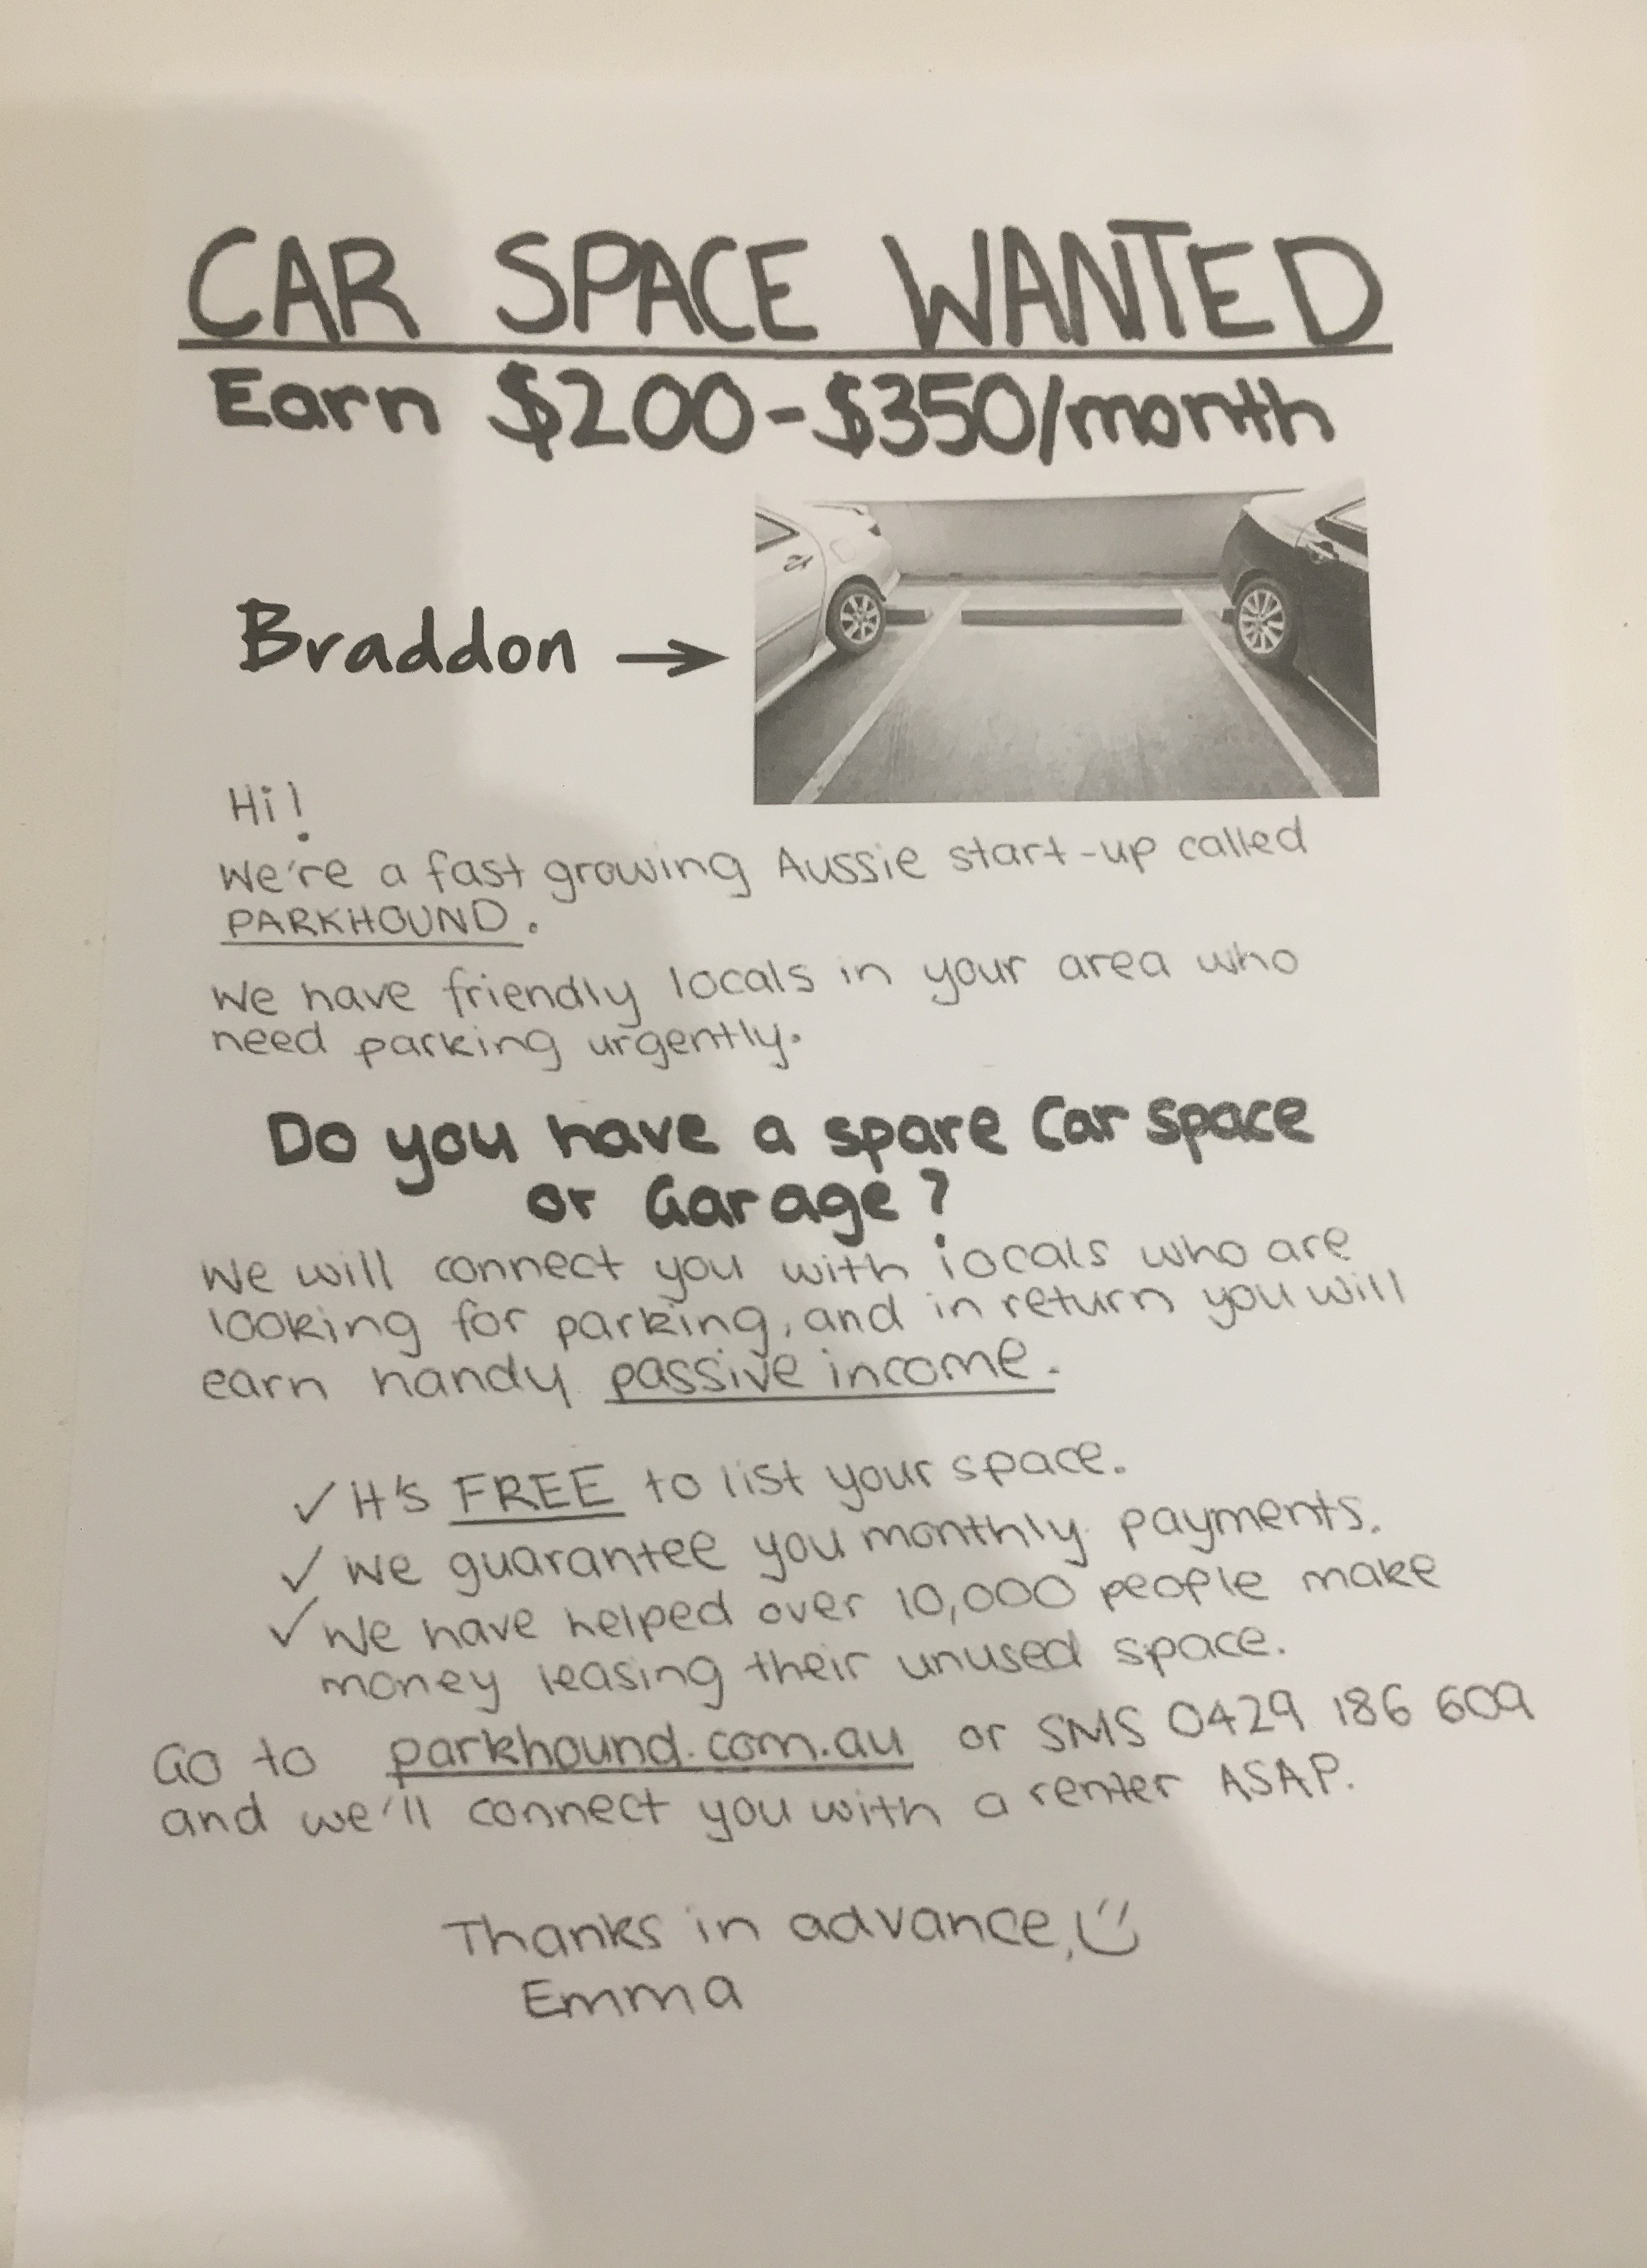 CAR SPACE WANTED
Earn $200-$350/month
Braddon →
Hi!
We're a fast growing Aussie start-up called
PARKHOUND.
We have friendly locals in your area who
need parking urgently.
Do you have a spare Car space
or Garage?
We will connect you with locals who are
looking for parking, and in return you will
earn handy passive income.
✓ It's FREE to list your space.
✓ We guarantee you monthly payments.
✓ We have helped over 10,000 people make
money leasing their unused space.
Go to parkhound.com.au or SMS 0429 186 609
and we'll connect you with a renter ASAP.
Thanks in advance,
Emma